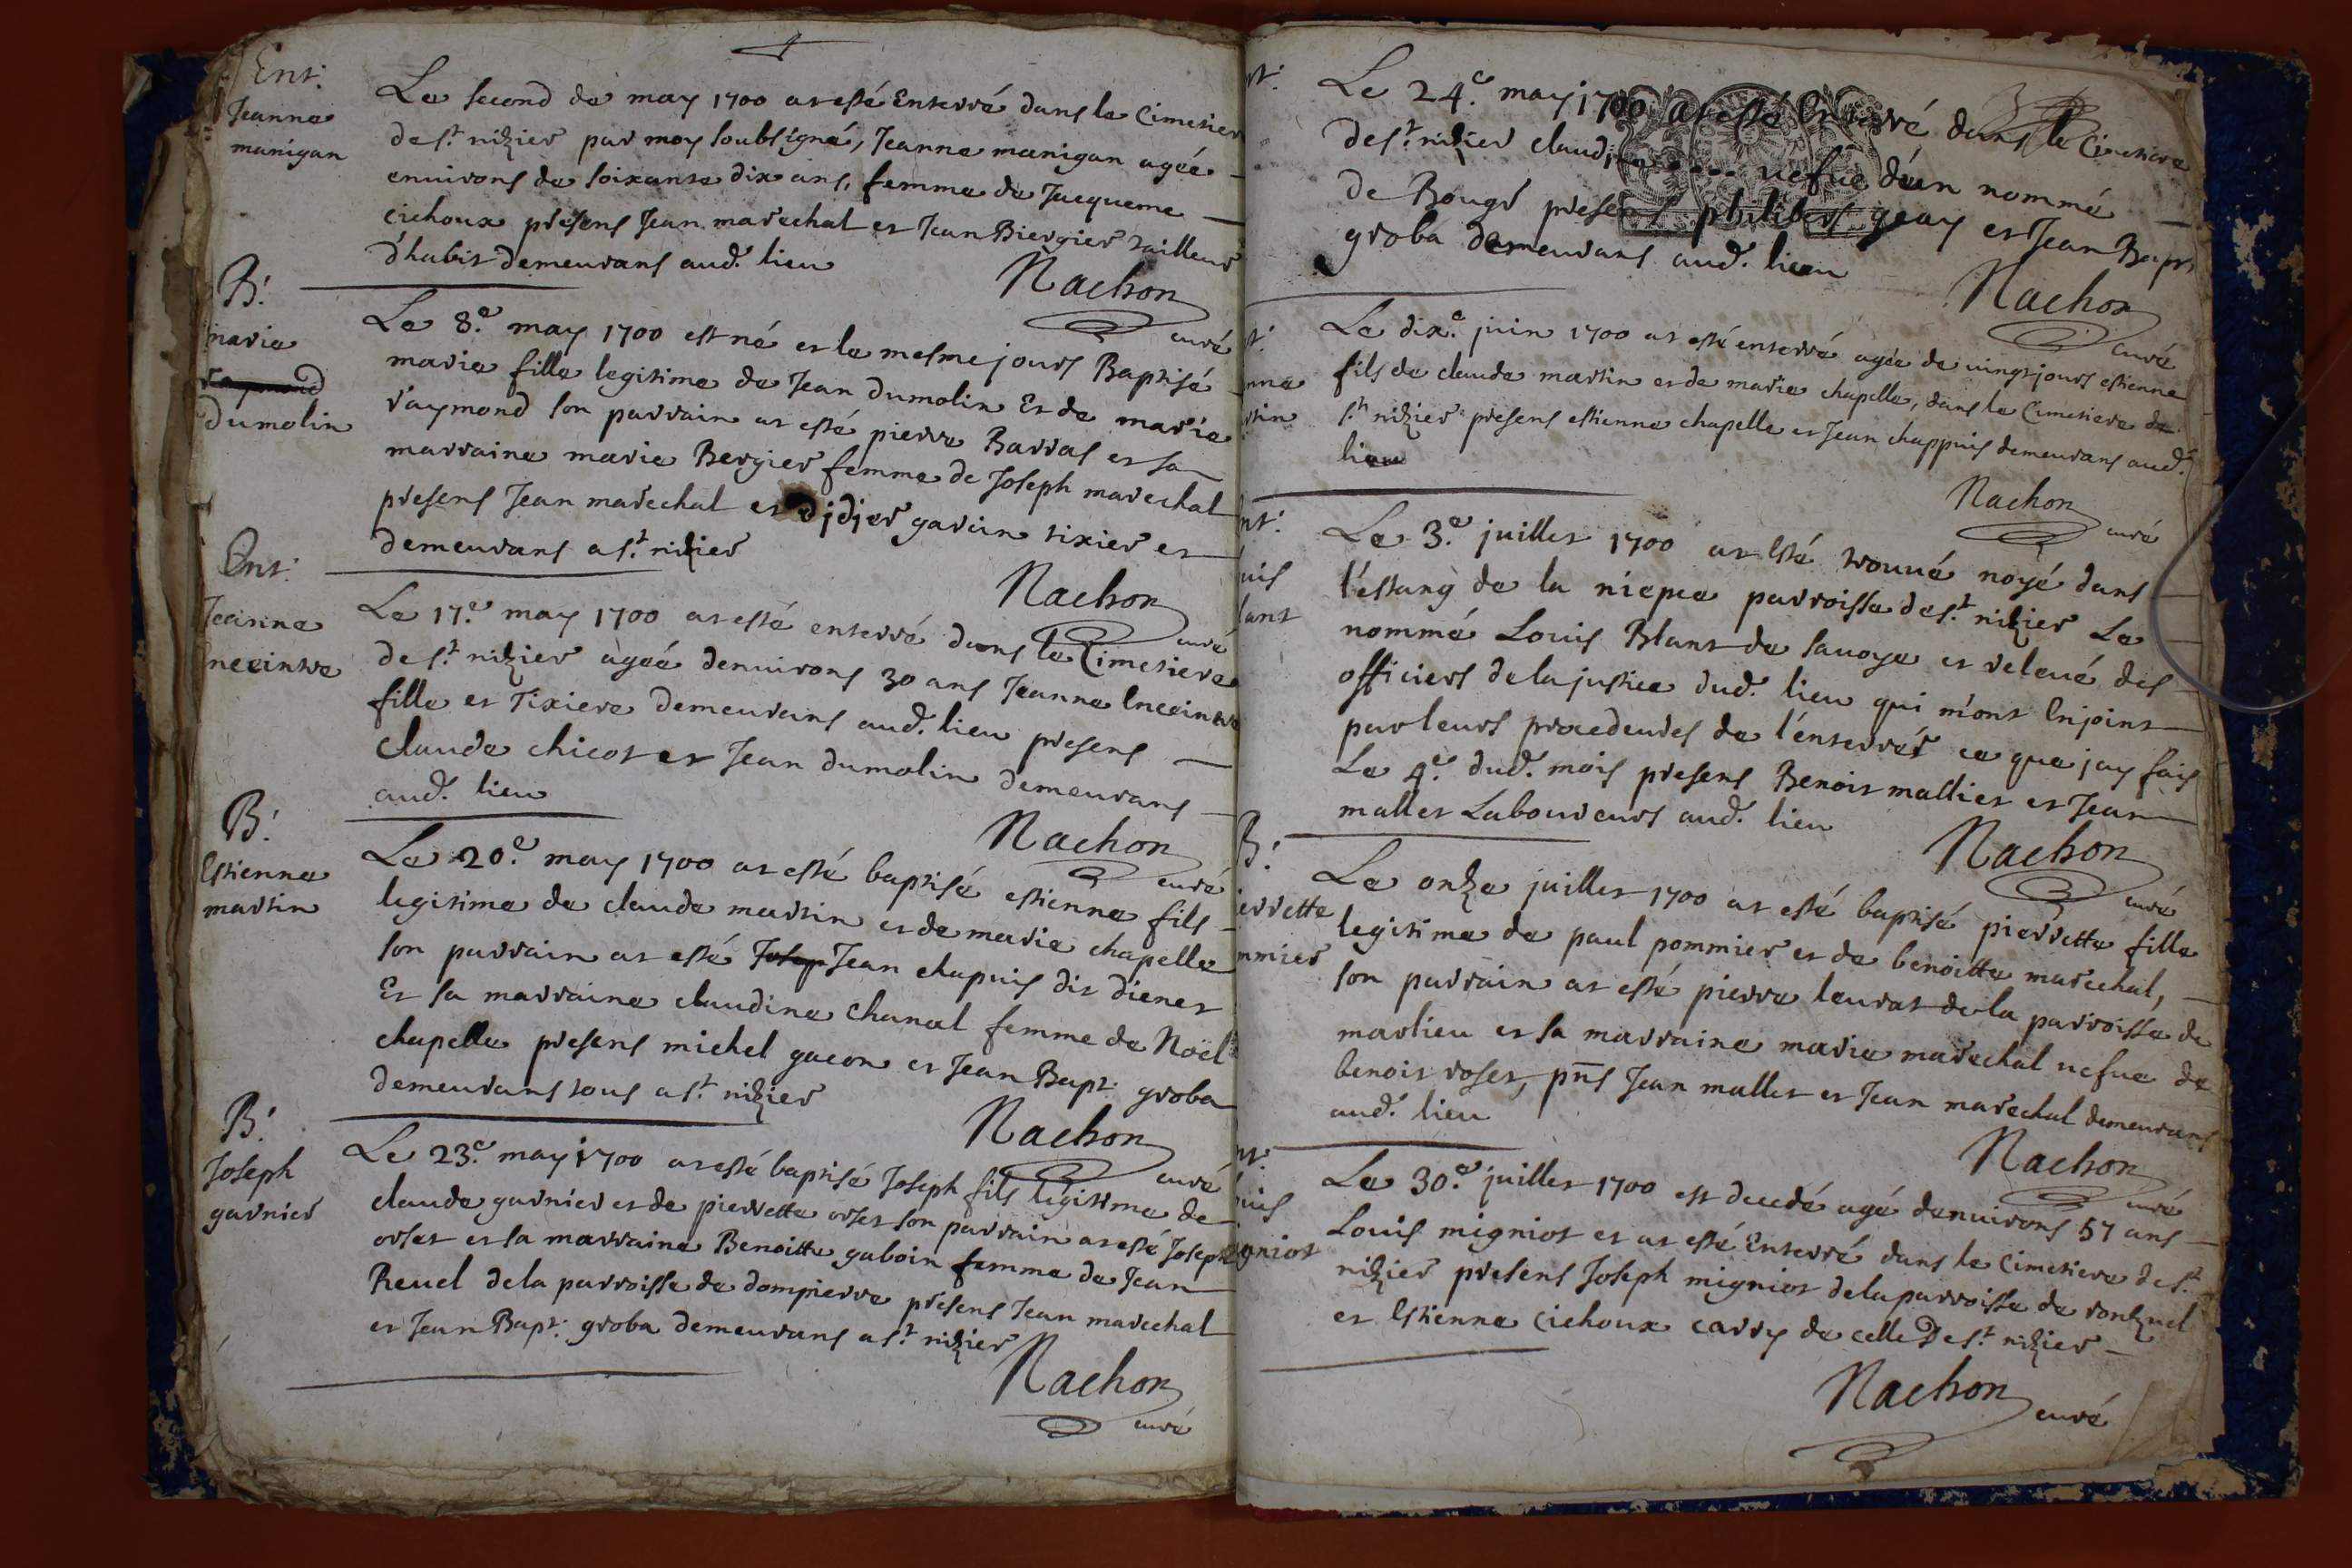 Ent:
Jeanne
manigan
Le second de may 1700 at esté Enterré dans le Cimetier
de st. nizier par moy soubsigné, Jeanne manigan agée
environs de soixante dix ans, femme de Jacqueme
cichoux presens Jean marechal et Jean Biergier tailleur
d'habit demeurans aud. lieu
Nachon
curé
B:
marie
raymond
dumolin
Le 8.e may 1700 est né et le mesme jours Baptisé
marie fille legitime de Jean dumolin Et de marie
raymond son parrain at esté pierre Barras et sa
marraine marie Bergier femme de Joseph marechal
presens Jean marechal et didier garain tixier et
demeurans a st. nizier
Nachon
curé
Ent:
Jeanne
Le 17.e may 1700 at esté enterré dans le Cimetiere
de st. nizier agée denvirons 30 ans Jeanne
fille et Tixiere demeurans aud. lieu presens
claude chicot et Jean dumolin demeurans
aud. lieu
Nachon
curé
B:
Estienne
martin
Le 20.e may 1700 at esté baptisé estienne fils
legitime de claude martin et de marie chapelle
son parrain at esté Josep Jean chapuis dit dienet
Et sa marraine claudine chanal femme de Noël
chapelle presens michel gacon et Jean Bapt: groba
demeurans tous a st. nizier
Nachon
curé
B:
Joseph
garnier
Le 23.e may 1700 at esté baptisé Joseph fils legitime de
claude garnier et de pierrette orset son parrain at esté Joseph
orset et sa marraine Benoitte gaboin femme de Jean
Revel de la parroisse de dompierre presens Jean marechal
et Jean Bapt: groba demeurans a st. nizier
Nachon
curé
nt:
Le 24.e may 1700 at esté Enterré dans le Cimetiere
de st. nizier claudine .... vefue d'un nommé
de Rouge presens philibert geay et Jean Bapt
groba demeurans aud. lieu
Nachon
curé
t:
nne
rtin
Le dix.e juin 1700 at esté enterré agée de vingt jours estienne
fils de claude martin et de marie chapelle, dans le Cimetiere de
st. nizier presens estienne chapelle et Jean chappuis demeurans aud.
lieu
Nachon
curé
nt:
uis
lant
Le 3.e juillet 1700 at esté trouué noyé dans
l'estang de la niepce parroisse de st. nizier Le
nommé Louis Blant de sauoye et releué des
officiers de la justice dud. lieu qui m'ont Enjoint
par leurs procedures de l'enterrér ce que jay fais
Le 4.e dud. mois presens Benoit mallier et Jean
mallet Laboureurs aud. lieu
Nachon
curé
B:
ierrette
mmier
Le onze juillet 1700 at esté baptisé pierrette fille
legitime de paul pommier et de benoitte marechal,
son parrain at esté pierre leurat de la parroisse de
marlieu et sa marraine marie marechal vefue de
benoit roset, pns Jean mallet et Jean marechal demeurans
aud. lieu
Nachon
curé
nt:
uis
igniot
Le 30.e juillet 1700 est decedé agé denuirons 57 ans
Louis migniot et at esté Enterré dans le Cimetiere de st.
nizier presens Joseph migniot de la parroisse de ronzuel
et Estienne Cichoux carry de celle De st. nizier
Nachon
curé